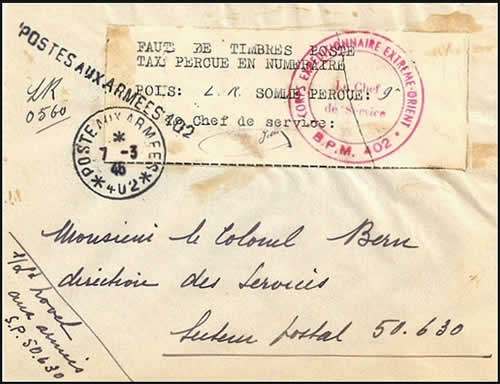 POSTES AUX ARMEES 402
LR
0560
FAUTE DE TIMBRES POSTE
TAXE PERCUE EN NUMERAIRE
POIDS: L R SOMME PERCUE: 9
Le Chef de service:
CORPS EXPEDITIONNAIRE EXTREME-ORIENT
Le Chef
de Service
B.P.M. 402
POSTE AUX ARMEES
*
7 -3
46
* 402 *
Monsieur le Colonel Bern
direction des Services
Secteur postal 50.630
aux armées
S.P. 50.630